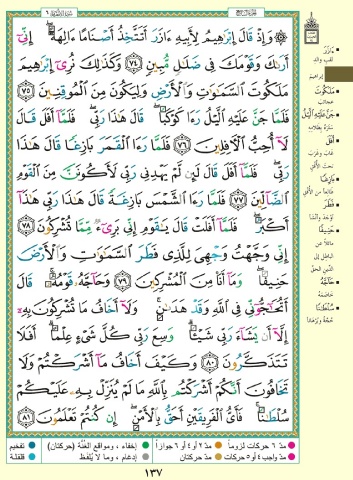 الجزء السابع
سورة الأنعام ٦
۞ وَإِذْ قَالَ إِبْرَٰهِيمُ لِأَبِيهِ ءَازَرَ أَتَتَّخِذُ أَصْنَامًا ءَالِهَةً ۖ إِنِّىٓ
أَرَىٰكَ وَقَوْمَكَ فِى ضَلَٰلٍ مُّبِينٍ ٧٤ وَكَذَٰلِكَ نُرِىٓ إِبْرَٰهِيمَ
مَلَكُوتَ ٱلسَّمَٰوَٰتِ وَٱلْأَرْضِ وَلِيَكُونَ مِنَ ٱلْمُوقِنِينَ ٧٥
فَلَمَّا جَنَّ عَلَيْهِ ٱلَّيْلُ رَءَا كَوْكَبًا ۖ قَالَ هَٰذَا رَبِّى ۖ فَلَمَّآ أَفَلَ قَالَ
لَآ أُحِبُّ ٱلْءَافِلِينَ ٧٦ فَلَمَّا رَءَا ٱلْقَمَرَ بَازِغًا قَالَ هَٰذَا
رَبِّى ۖ فَلَمَّآ أَفَلَ قَالَ لَئِن لَّمْ يَهْدِنِى رَبِّى لَأَكُونَنَّ مِنَ ٱلْقَوْمِ
ٱلضَّآلِّينَ ٧٧ فَلَمَّا رَءَا ٱلشَّمْسَ بَازِغَةً قَالَ هَٰذَا رَبِّى هَٰذَآ
أَكْبَرُ ۖ فَلَمَّآ أَفَلَتْ قَالَ يَٰقَوْمِ إِنِّى بَرِىٓءٌ مِّمَّا تُشْرِكُونَ ٧٨
إِنِّى وَجَّهْتُ وَجْهِىَ لِلَّذِى فَطَرَ ٱلسَّمَٰوَٰتِ وَٱلْأَرْضَ
حَنِيفًا ۖ وَمَآ أَنَا۠ مِنَ ٱلْمُشْرِكِينَ ٧٩ وَحَآجَّهُۥ قَوْمُهُۥ ۚ قَالَ
أَتُحَٰٓجُّوٓنِّى فِى ٱللَّهِ وَقَدْ هَدَىٰنِ ۚ وَلَآ أَخَافُ مَا تُشْرِكُونَ بِهِۦٓ
إِلَّآ أَن يَشَآءَ رَبِّى شَيْـًٔا ۗ وَسِعَ رَبِّى كُلَّ شَىْءٍ عِلْمًا ۗ أَفَلَا
تَتَذَكَّرُونَ ٨٠ وَكَيْفَ أَخَافُ مَآ أَشْرَكْتُمْ وَلَا
تَخَافُونَ أَنَّكُمْ أَشْرَكْتُم بِٱللَّهِ مَا لَمْ يُنَزِّلْ بِهِۦ عَلَيْكُمْ
سُلْطَٰنًا ۚ فَأَىُّ ٱلْفَرِيقَيْنِ أَحَقُّ بِٱلْأَمْنِ ۖ إِن كُنتُمْ تَعْلَمُونَ ٨١
ءَازَرَ
لقب والد
إبراهيم
مَلَكُوتَ
عجائب
جَنَّ عَلَيْهِ الَّيْلُ
ستره بظلامه
أَفَلَ
غاب وغرب
تحت الأفق
بَازِغًا
طالعا من الأفق
فَطَرَ
أوجد وأنشأ
حَنِيفًا
مائلا عن
الباطل إلى
الدين الحق
حَآجَّهُ
خاصمه
سُلْطَٰنًا
حجة وبرهانا
مدّ ٦ حركات لزوماً
مدّ ٢ أو ٤ أو ٦ جوازاً
إخفاء، ومواقع الغنّة (حركتان)
تفخيم
مدّ واجب ٤ أو ٥ حركات
مدّ حركتان
إدغام، وما لا يُلفَظ
قلقلة
١٣٧